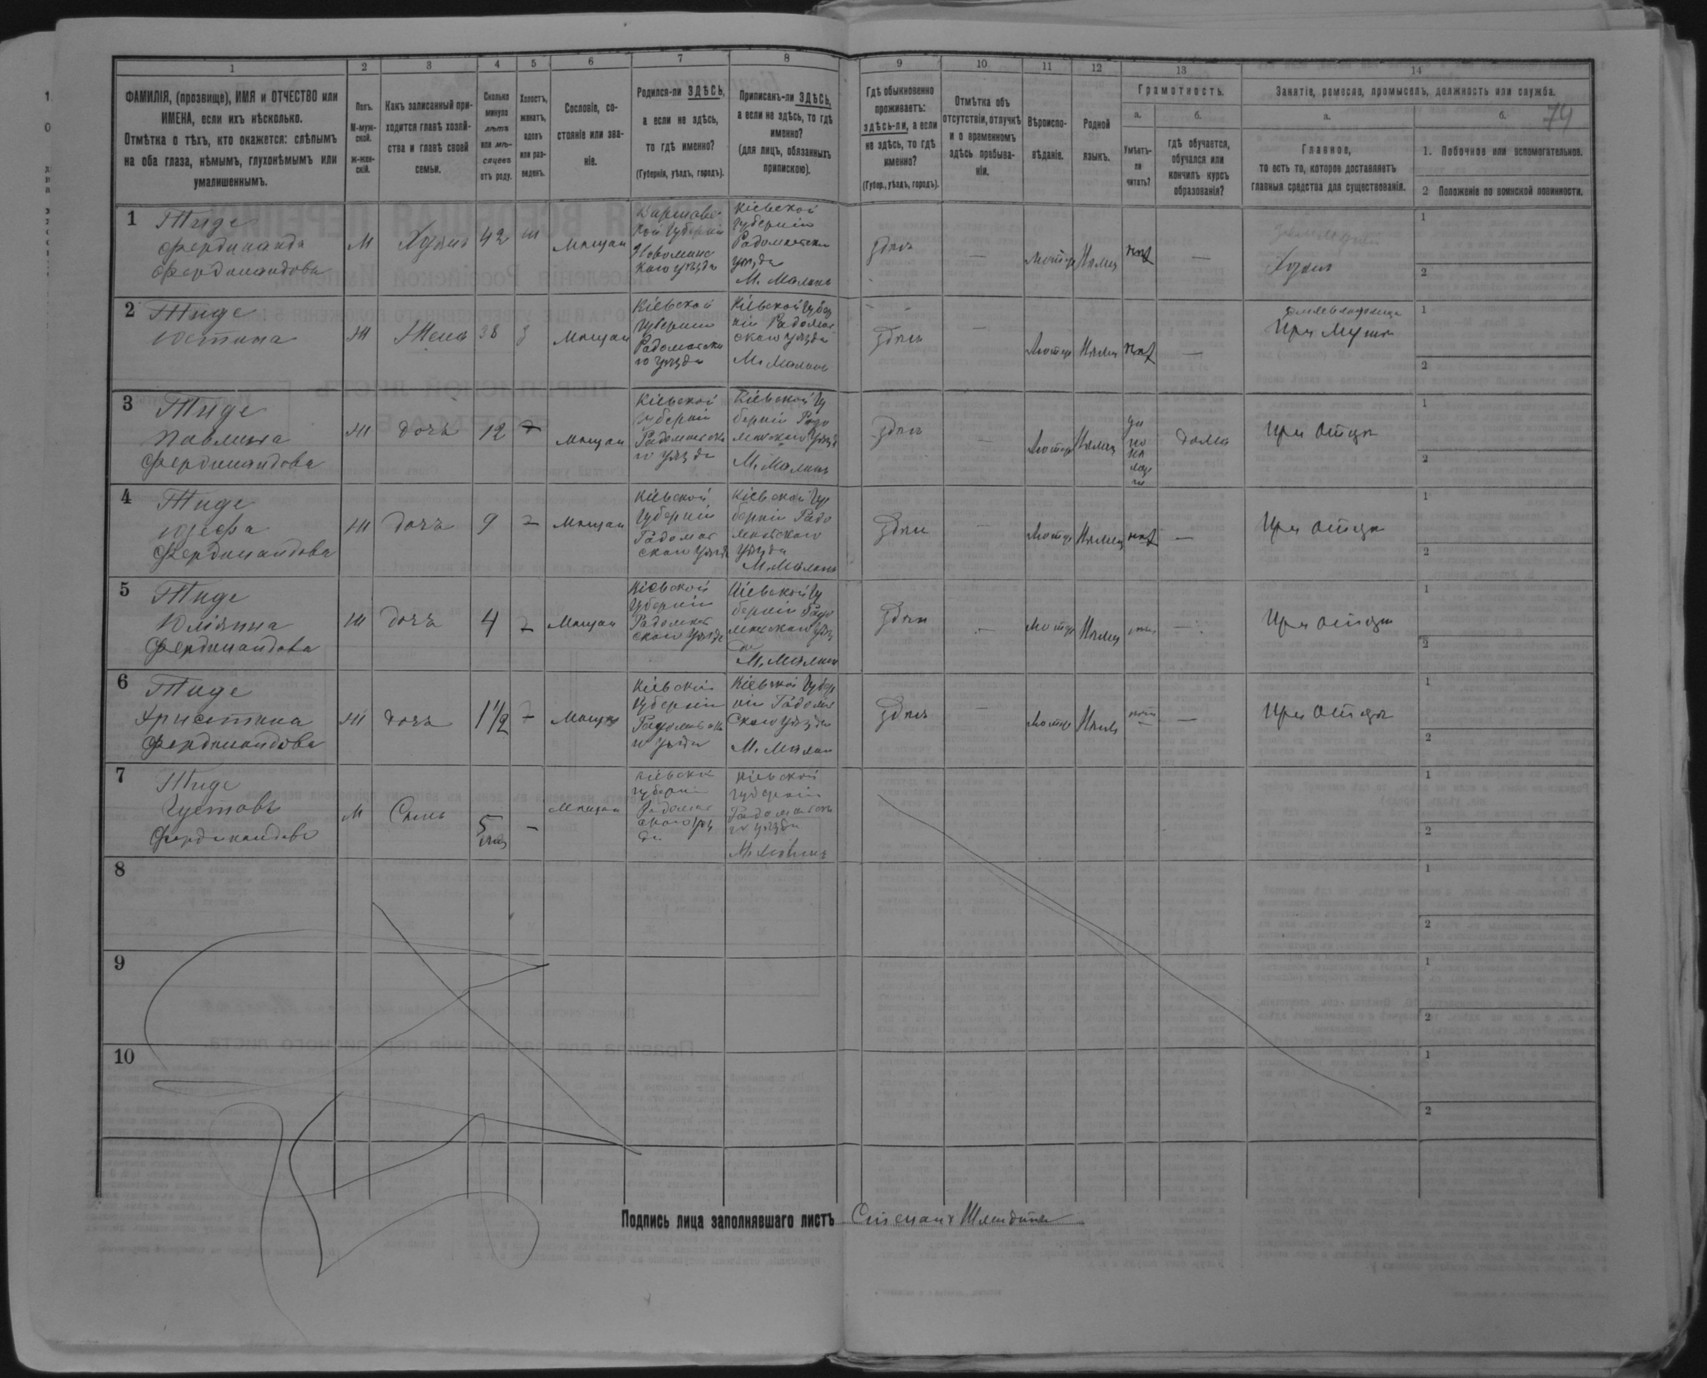 74
1 2 3 4 5 6 7 8 9 10 11 12 13 14
ФАМИЛІЯ, (прозвище), ИМЯ и ОТЧЕСТВО или
ИМЕНА, если ихъ нѣсколько.
Отмѣтка о тѣхъ, кто окажется: слѣпымъ
на оба глаза, нѣмымъ, глухонѣмымъ или
умалишеннымъ.
Полъ.
М-муж-
ской.
Ж-жен-
скій.
Какъ записанный при-
ходится главѣ хозяй-
ства и главѣ своей
семьи.
Сколько
минуло
лѣтъ
или мѣ-
сяцевъ
отъ роду.
Холостъ,
женатъ,
вдовъ
или раз-
веденъ.
Сословіе, со-
стояніе или зва-
ніе.
Родился-ли ЗДѢСЬ,
а если не здѣсь,
то гдѣ именно?
(Губернія, уѣздъ, городъ).
Приписанъ-ли ЗДѢСЬ,
а если не здѣсь, то гдѣ
именно?
(для лицъ, обязанныхъ
припискою).
Гдѣ обыкновенно
проживаетъ:
здѣсь-ли, а если
не здѣсь, то гдѣ
именно?
(Губер., уѣздъ, городъ).
Отмѣтка объ
отсутствіи, отлучкѣ
и о временномъ
здѣсь пребыва-
ніи.
Вѣроиспо-
вѣданіе.
Родной
языкъ.
Грамотность.
а.
Умѣетъ-
ли
читать?
б.
гдѣ обучается,
обучался или
кончилъ курсъ
образованія?
Занятіе, ремесло, промыселъ, должность или служба.
а.
Главное,
то есть то, которое доставляетъ
главныя средства для существованія.
б.
1. Побочное или вспомогательное.
2 Положеніе по воинской повинности.
1
Тиде
Фердинандъ
Фердинандовъ
М
42
Мѣщан
Новоминс
каго уѣзда
Кіевской
Губерніи
Радомысльск
уѣзда
М. Малинъ
здѣсь
—
Лютер
Нѣмец
нѣт
—
1
2
2
Тиде
Юстина
Ж
Жена
38
З
Мѣщан
Кіевской
Губерніи
Радомысльска
го уѣзда
Кіевской Губер
ніи Радомысл
скаго уѣзда
М. Малинъ
здѣсь
—
Лютер
Нѣмец
нѣт
—
При Мужѣ
1
2
3
Тиде
Павлина
Фердинандова
Ж
дочь
12
Мѣщан
Кіевской
Губерніи
Радомысльска
го уѣзда
Кіевской Гу
берніи Радо
мысльскаго уѣзда
М. Малинъ
здѣсь
—
Лютер
Нѣмец
дома
При Отцѣ
1
2
4
Тиде
Юзефа
Фердинандова
Ж
дочь
9
Мѣщан
Кіевской
Губерніи
Радомысл
скаго уѣзд
Кіевской Гу
берніи Радо
мысльскаго
уѣзда
М. Малинъ
здѣсь
—
Лютер
Нѣмец
нѣт
—
При Отцѣ
1
2
5
Тиде
Юліянна
Фердинандова
Ж
дочь
4
Мѣщан
Кіевской
Губерніи
Радомысл
скаго уѣзда
Кіевской Гу
берніи Радо
мысльскаго уѣз
да
М. Малинъ
здѣсь
—
Лютер
Нѣмец
нѣт
—
При Отцѣ
1
2
6
Тиде
Христина
Фердинандова
Ж
дочь
1 1/2
Мѣщан
Кіевской
Губерніи
Радомысльска
го уѣзда
Кіевской Губер
ніи Радомысл
скаго уѣзда
М. Малин
здѣсь
—
Лютер
Нѣмец
нѣт
—
При Отцѣ
1
2
7
Тиде
Густавъ
Фердинандовъ
М
Сынъ
5
мѣс
—
Мѣщан
Кіевской
Губерніи
Радомысл
скаго уѣз
да
Кіевской
Губерніи
Радомысльска
го уѣзда
М. Малинъ
1
2
8
1
2
9
1
2
10
1
2
Подпись лица заполнявшаго листъ